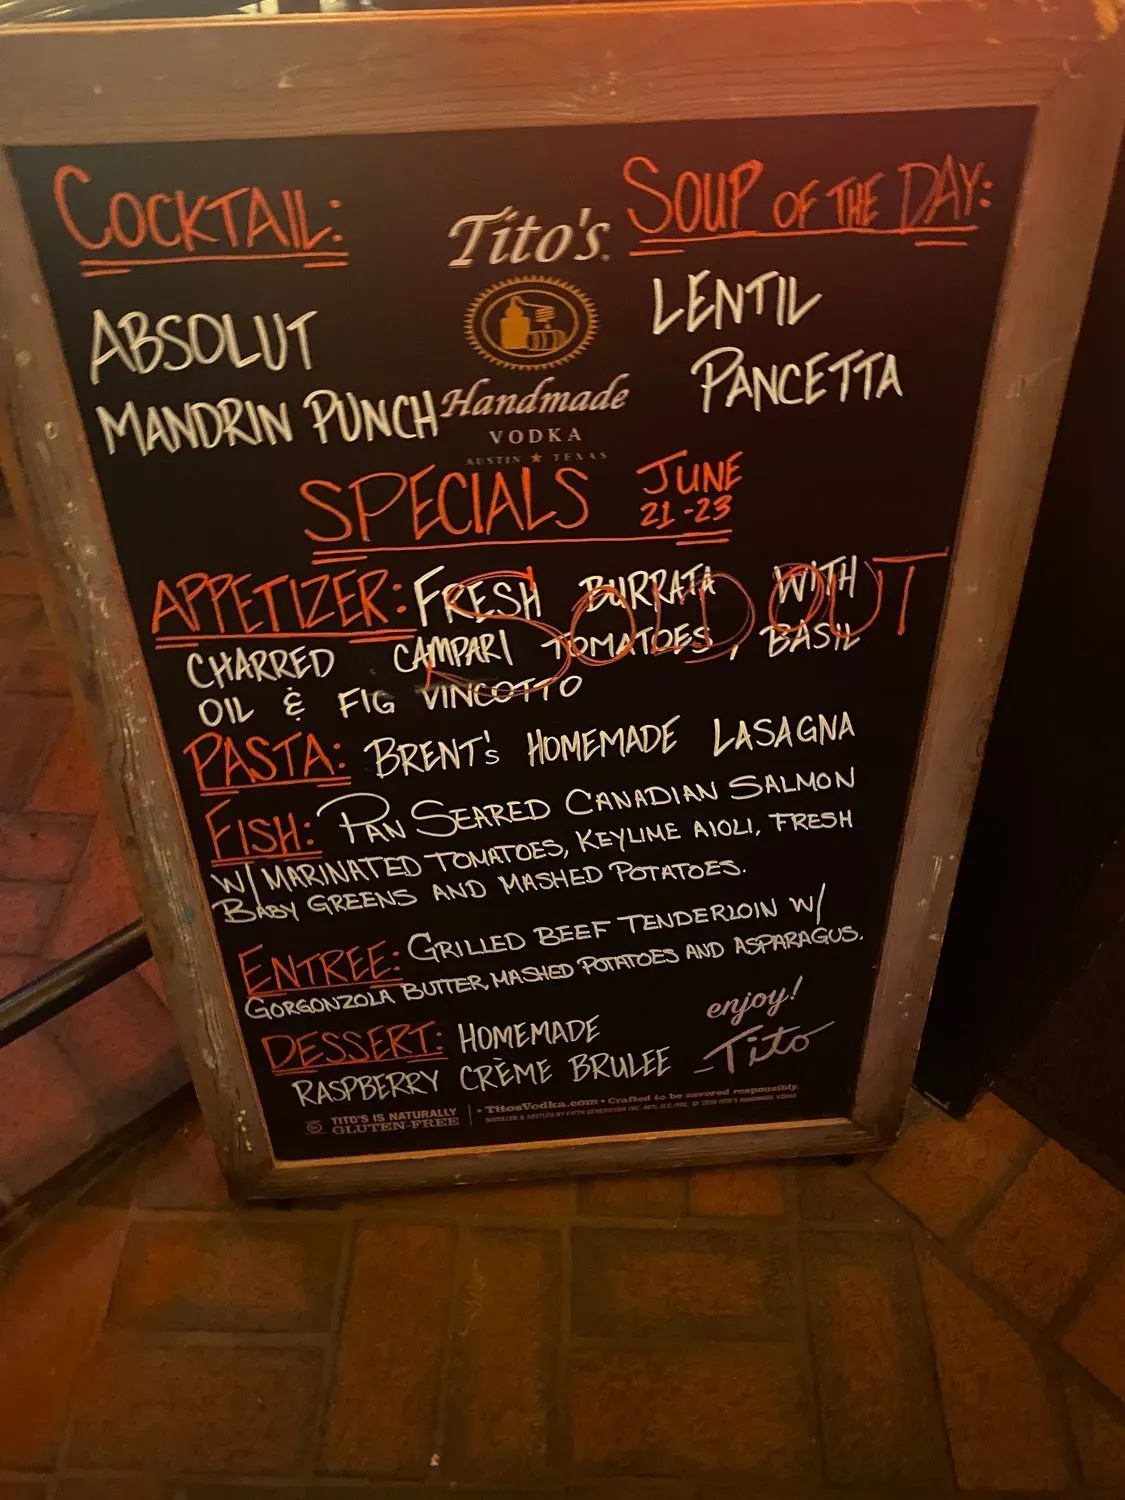 COCKTAIL:
ABSOLUT
MANDRIN PUNCH
Tito's
Handmade
VODKA
AUSTIN ★ TEXAS
SOUP OF THE DAY:
LENTIL
PANCETTA
SPECIALS JUNE
21-23
APPETIZER: FRESH BURRATA WITH
SOLD OUT
CHARRED CAMPARI TOMATOES, BASIL
OIL & FIG VINCOTTO
PASTA: BRENT'S HOMEMADE LASAGNA
FISH: PAN SEARED CANADIAN SALMON
W/ MARINATED TOMATOES, KEYLIME AIOLI, FRESH
BABY GREENS AND MASHED POTATOES.
ENTREE: GRILLED BEEF TENDERLOIN W/
GORGONZOLA BUTTER, MASHED POTATOES AND ASPARAGUS.
DESSERT: HOMEMADE
RASPBERRY CRÈME BRULEE
enjoy!
-Tito
TITO'S IS NATURALLY
GLUTEN-FREE
• TitosVodka.com • Crafted to be savored responsibly.
DISTILLED & BOTTLED BY FIFTH GENERATION INC. 40% ALC./VOL. © 2020 TITO'S HANDMADE VODKA